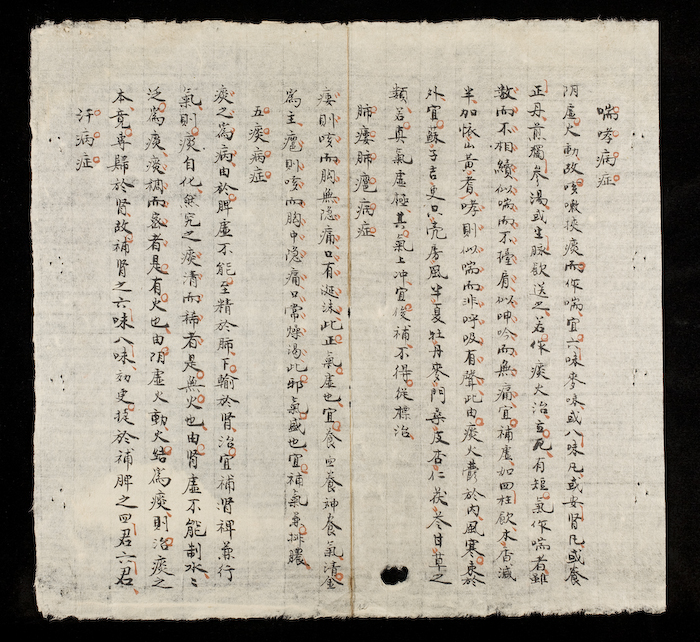 喘哮病症
阴虚火動故咳嗽侠痰而作喘宜六味麥味或八味凡或安肾凡或養
正丹煎獨參湯或生脉飲送之若作痰火治立死有短氣作喘者雖
数而不相續似喘而不擡肩似呻吟而無痛宜補虚如四柱飲本香减
半加怀山黄耆哮則似喘而非呼吸有聲此由痰火欝於内風寒束於
外宜蘇子吉更只壳房風半夏牡丹麥門桑皮杏仁茯苓甘草之
類若真氣虚極其氣上冲宜後補不得從標治
肺痿肺癰病症
痿則咳而胸無隐痛口有涎沫此正氣虚也宜養血養神養氣清金
為主癰則咳而胸中隐痛口常燥渴此邪氣盛也宜補氣兼排膿
五痰病症
痰之為病由於脾虚不能至精於肺下輸於肾治宜補肾裨兼行
氣則痰自化然究之痰清而稀者是無火也由肾虚不能制水〻
泛為痰痰稠而濁者是有火也由阴虚火動火結為痰則治痰之
本竟專歸於肾故補肾之六味八味初更捷於補脾之四君六君
汗病症